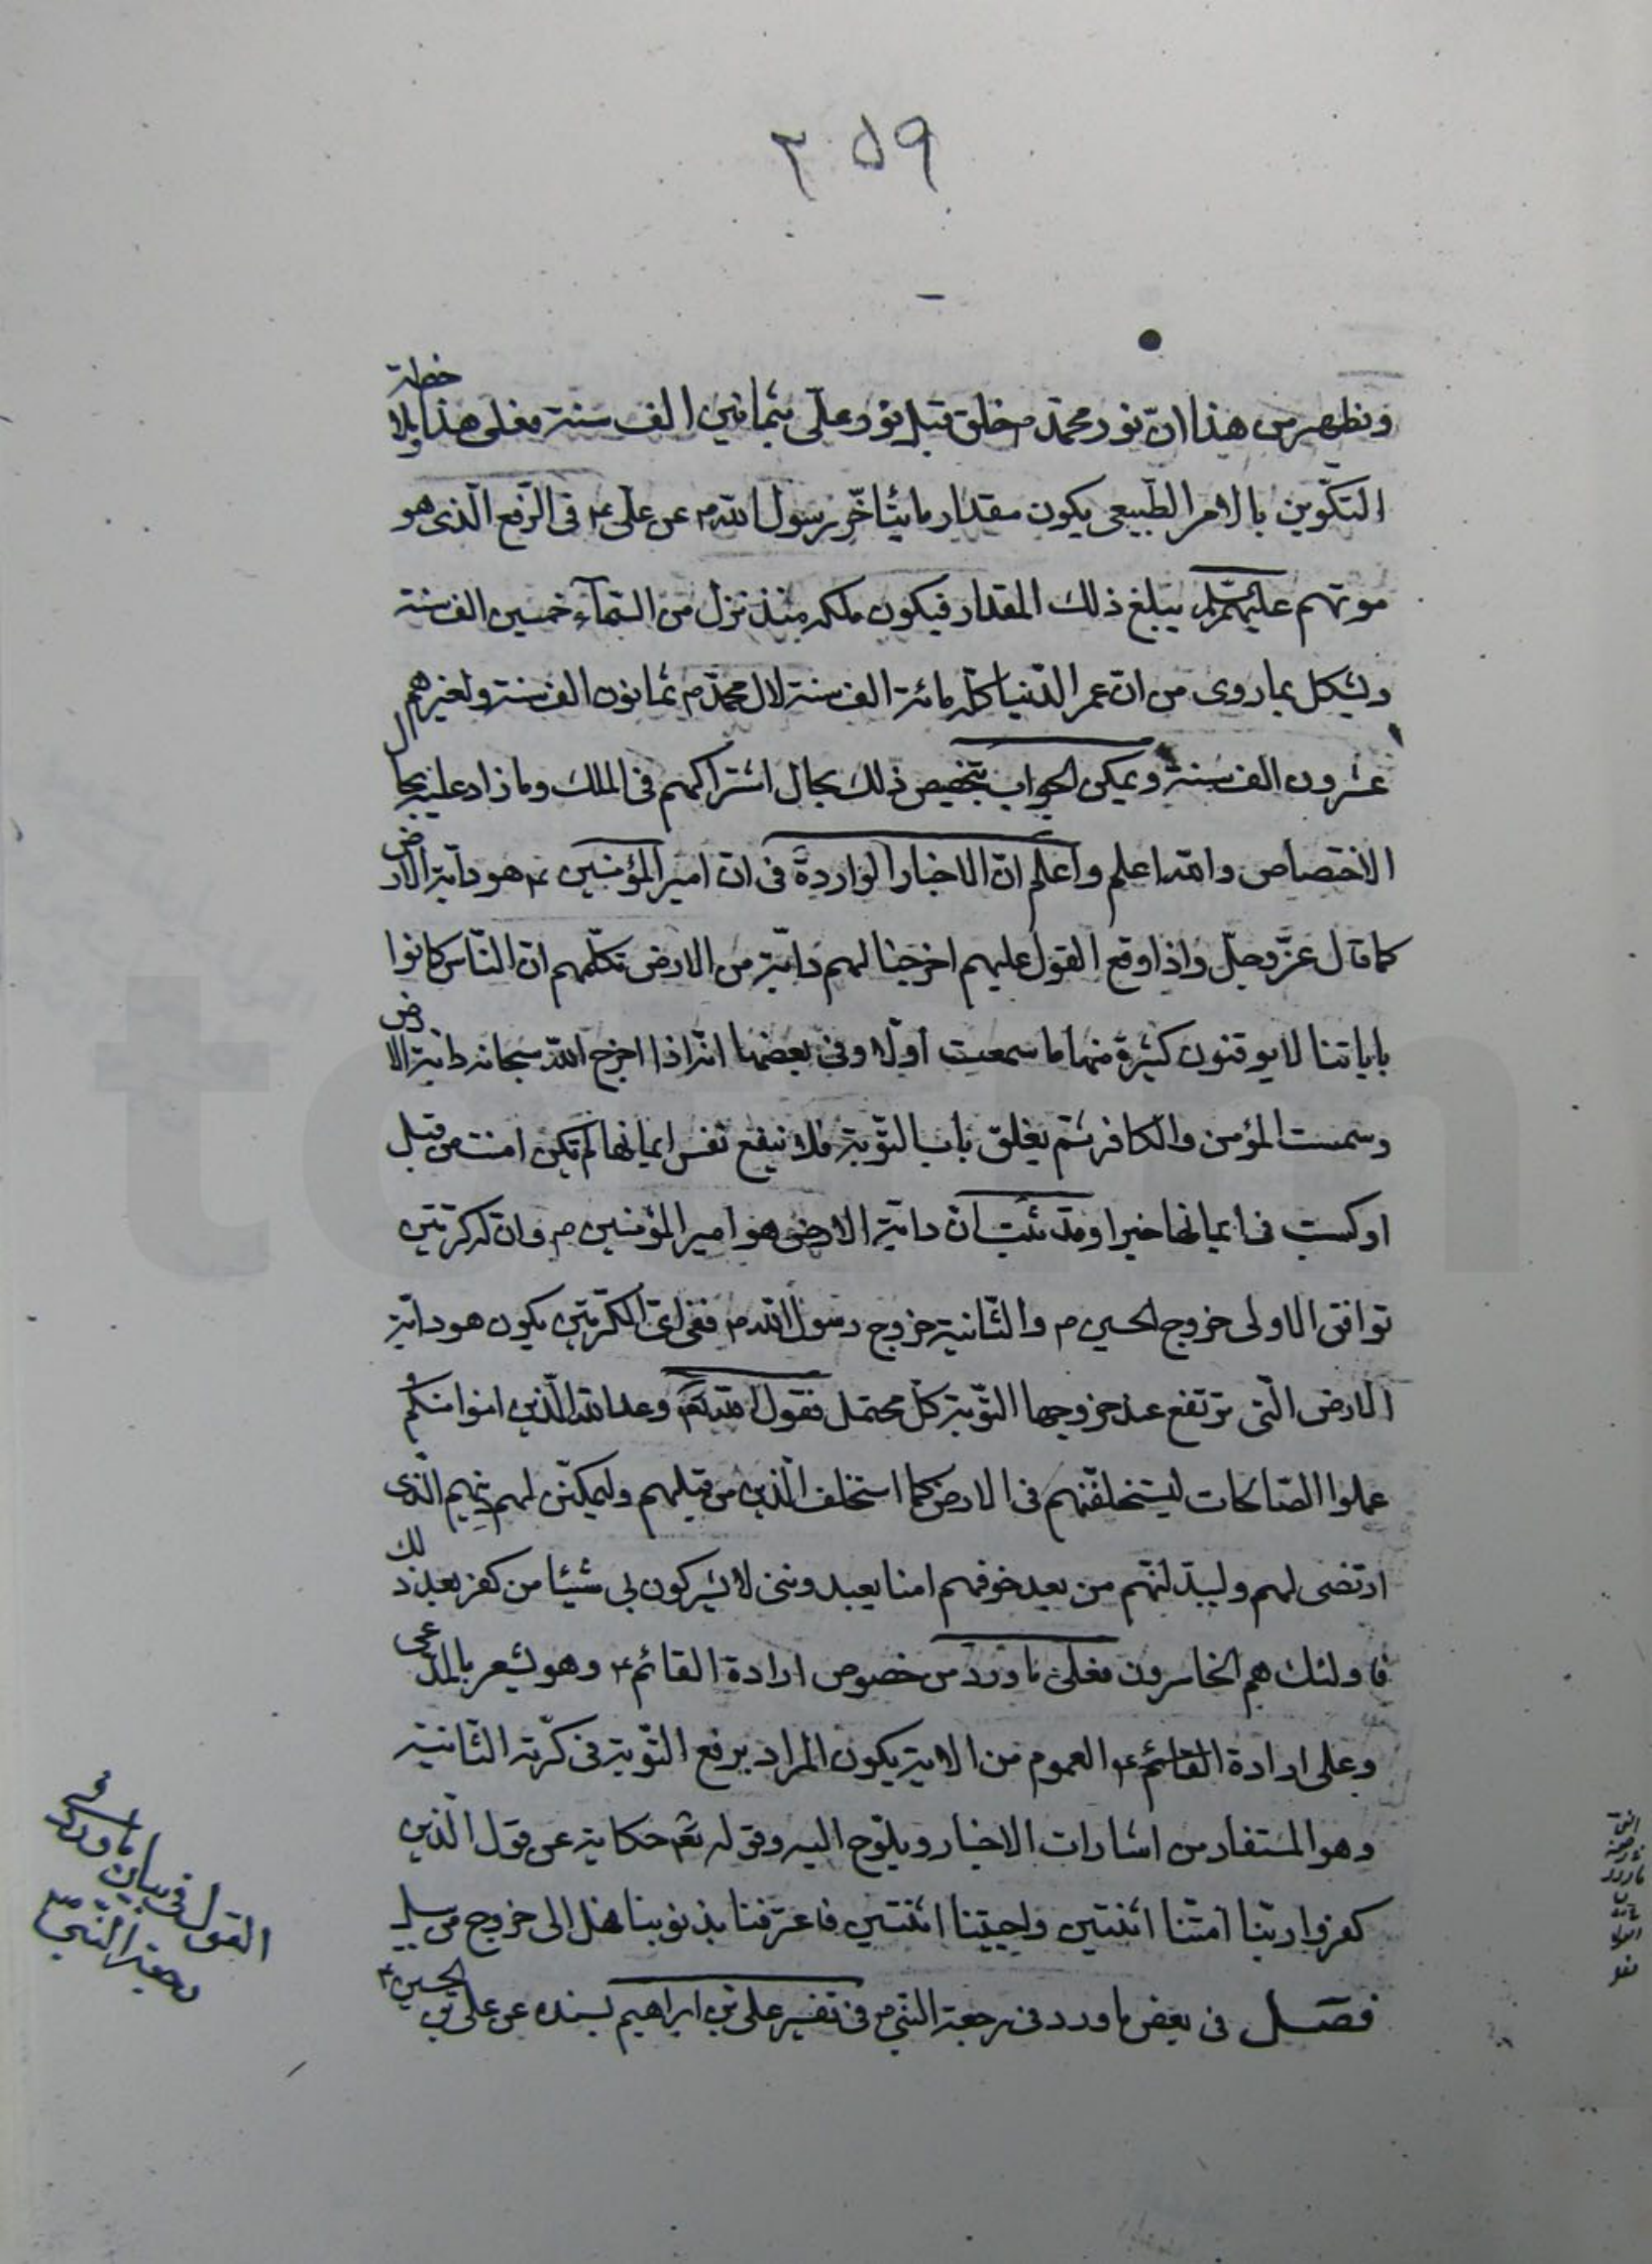 ٢٥٩
ونظهر من هذا ان نور محمد ص خلق قبل نور علی بثمانين الف سنة فعلی هذا بملاحظة
التكوين بالامر الطبيعی يكون مقدار ما يتأخر رسول الله ص عن علی ع فی الرفع الذی هو
موتهم عليهم السلم يبلغ ذلك المقدار فيكون ملكه منذ نزل من السمآء خمسين الف سنة
ويشكل بما روی من ان عمر الدنيا كله مائة الف سنة لال محمد ص ثمانون الف سنة ولغيرهم
عشرون الف سنة ويمكن الجواب بتخصيص ذلك بحال اشتراكهم فی الملك وما زاد عليه بحال
الاختصاص والله اعلم واعلم ان الاخبار الواردة فی ان امير المؤمنين ع هو دابة الارض
كما قال عز وجل واذا وقع القول عليهم اخرجنا لهم دابة من الارض تكلمهم ان الناس كانوا
باياتنا لا يوقنون كثيرة منها ما سمعت اولا وفی بعضها انه اذا اخرج الله سبحانه دابة الارض
وسمت المؤمن والكافر ثم يغلق باب التوبة فلا ينفع نفس ايمانها لم تكن امنت من قبل
او كسبت فی ايمانها خيرا وقد ثبت ان دابة الارض هو امير المؤمنين ع وان له كرتين
توافق الاولی خروج الحسين ع والثانية خروج رسول الله ص ففی ای الكرتين يكون هو دابة
الارض التی ترتفع عند خروجها التوبة كل محتمل فقول الله تعم وعد الله الذين امنوا منكم و
عملوا الصالحات ليستخلفنهم فی الارض كما استخلف الذين من قبلهم وليمكنن لهم دينهم الذی
ارتضی لهم وليبدلنهم من بعد خوفهم امنا يعبدوننی لا يشركون بی شيئا من كفر بعد ذلك
فاولئك هم الخاسرون فعلی ما ورد من خصوص ارادة القائم ع وهو يشعر بالمدعی
وعلی ارادة القائم ع العموم من الاية يكون المراد برفع التوبة فی كرته الثانية
وهو المستفاد من اشارات الاخبار ويلوح اليه وقوله تعم حكاية عن قول الذين
كفروا ربنا امتنا اثنتين واحييتنا اثنتين فاعترفنا بذنوبنا فهل الی خروج من سبيل
فصل فی بعض ما ورد فی رجعة النبی ص فی تفسير علی بن ابراهيم بسنده عن علی بن الحسين ع
القول فی بيان ما ورد فی
رجعة النبی ص